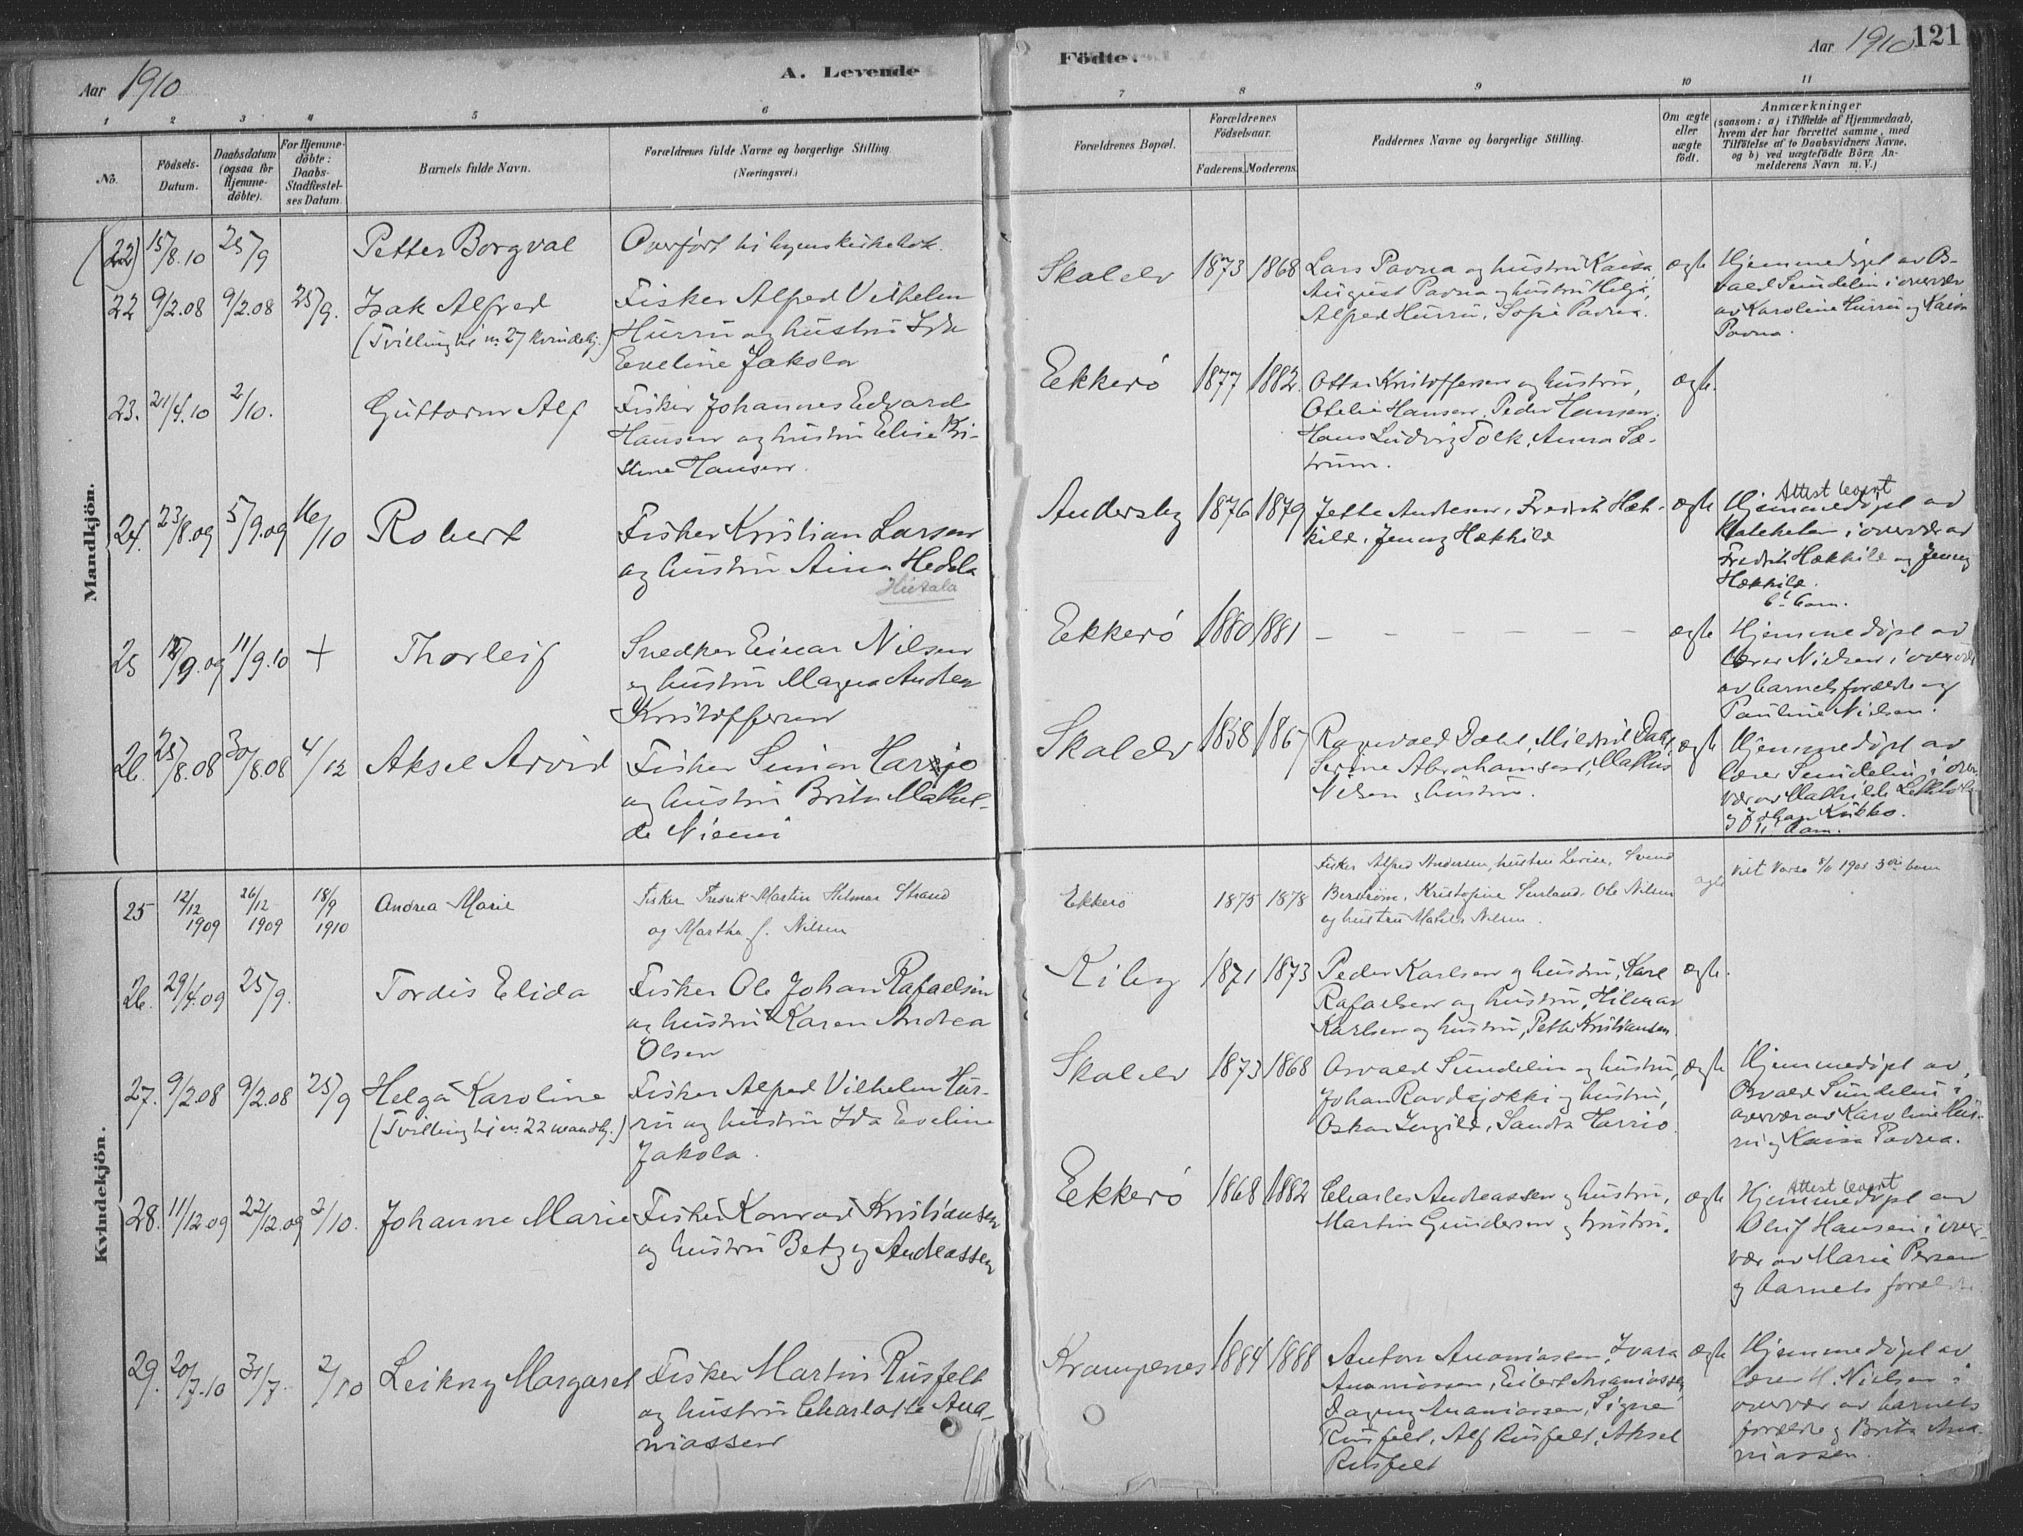 Aar 1910
A. Levende
Födte.
Aar 1910
121
1 2 3 4 5 6 7 8 9 10 11
No.
Födsels-
Datum.
Daabsdatum
(ogsaa for
Hjemme-
döbte).
For Hjemme-
döbte:
Daabs-
Stadfæstel-
ses Datum.
Barnets fulde Navn.
Forældrenes fulde Navne og borgerlige Stilling.
(Næringsvei.)
Forældrenes Bopæl.
Forældrenes
Födselsaar.
Faderens. Moderens.
Faddernes Navne og borgerlige Stilling.
Om ægte
eller
uægte
födt.
Anmærkninger
(saasom: a) i Tilfælde af Hjemmedaab,
hvem der har forrettet samme, med
Tilföielse af to Daabsvidners Navne,
og b) ved uægtefödte Börn An-
melderens Navn m. V.)
Mandkjön.
(22) 15/8.10 25/9 Petter Borgval
22 9/2.08 9/2.08 25/9. Isak Alfred
(Tvilling til nr. 27 kvindekj.)
Fisker Alfred Vilhelm
Hurru og hustru Ida
Eveline Jakola
Skalelv 1873 1868 Lars Pavna og hustru Kaisa,
August Pavna og hustru Helja,
Alfred Hurru, Sofie Pavna.
ægte
Hjemmedöpt av O-
svald Sundelin i overvær
av Karoline Hurru og Kaisa
Pavna.
23. 21/4.10 2/10. Guttorm Alf
Fisker Johannes Edvard
Hansen og hustru Elise Kri-
stine Hansen.
Ekkerö 1877 1882. Otto Kristoffersen og hustru,
Otelie Hansen, Peder Hansen,
Hans Ludvig Folk, Anna Sæ-
trum.
ægte.
24. 23/8.09 5/9.09 16/10 Robert
Fisker Kristian Larsen
og hustru Aina Hedda
Hietala
Andersby 1876 1879 Jette Andersen, Fredrik Hæk-
kilä, Jenny Hækkilä
ægte
Attest levert
Hjemmedöpt av
kateketen i overvær av
Fredrik Hækkilä og Jenny
Hækkilä.
6te barn.
25 12/9.09 11/9.10 + Thorleif
Snedker Einar Nilsen
og hustru Magna Andrea
Kristoffersen
Ekkerö 1880 1881 – – – – – –
ægte
Hjemmedöpt av
lærer Nielsen i overvær
av barnets forældre og
Pauline Nielsen.
26. 25/8.08 30/8.08 4/12 Aksel Arvid
Fisker Simon Harjo
og hustru Brita Mathil-
de Niemi
Skalelv 1858 1867 Ragnvald Dahl, Mildrid Dahl,
Serine Abrahamsen, Mathis
Nilsen og hustru.
ægte
Hjemmedöpt av
lærer Sundelin i over-
vær av Mathilde
og Johan Kukko.
11 barn.
Kvindekjön.
25 12/12 1909 26/12 1909 18/9 1910 Andrea Marie
Fisker Fredrik Martin Hilmar Strand
og Martha f. Nilsen
Ekkerö 1875 1878
Fisker Alfred Andersen, hustru Lovise, Svend
Berström, Kristofine Surland, Ole Nilsen
og hustru Matilde Nilsen.
ægte
viet Vadsö 8/11 1901 3die barn
26. 29/4.09 25/9. Tordis Elida
Fisker Ole Johan Rafaelsen
og hustru Karen Andrea
Olsen
Kiby 1871 1873 Peder Karlsen og hustru, Karl
Rafaelsen og hustru, Hilmar
Karlsen og hustru, Petter Kristiansen.
ægte.
27. 9/2.08 9/2.08 25/9 Helga Karoline
(Tvilling til nr. 22 mandkj.)
Fisker Alfred Vilhelm Hur-
ru og hustru Ida Eveline
Jakola.
Skalelv 1873 1868 Osvald Sundelin og hustru,
Johan Ravdsjokki og hustru,
Oskar Ingilä, Sandra Harrio.
ægte
Hjemmedöpt av
Osvald Sundelin i
overvær av Karoline Hur-
ru og Kaisa Pavna.
28. 11/12.09 22/12.09 2/10. Johanne Marie
Fisker Konrad Kristiansen
og hustru Betzy Andreassen
Ekkerö 1868 1882 Charles Andreassen og hustru,
Martin Gundersen og hustru.
ægte
Attest levert
Hjemmedöpt av
Oluf Hansen i over-
vær av Marie Persen
og barnets forældre
29. 20/7.10 31/7. 2/10 Leikny Margaret
Fisker Martin Rusfelt
og hustru Charlotte Ana-
niassen
Krampenes 1884 1888 Anton Ananiassen, Ivara
Ananiassen, Eilert Ananiassen,
Dagny Ananiassen, Signe
Rusfelt, Alf Rusfelt, Aksel
Rusfelt
ægte
Hjemmedöpt av
lærer H. Nielsen i
overvær av barnets
forældre og Brita Ana-
niassen.